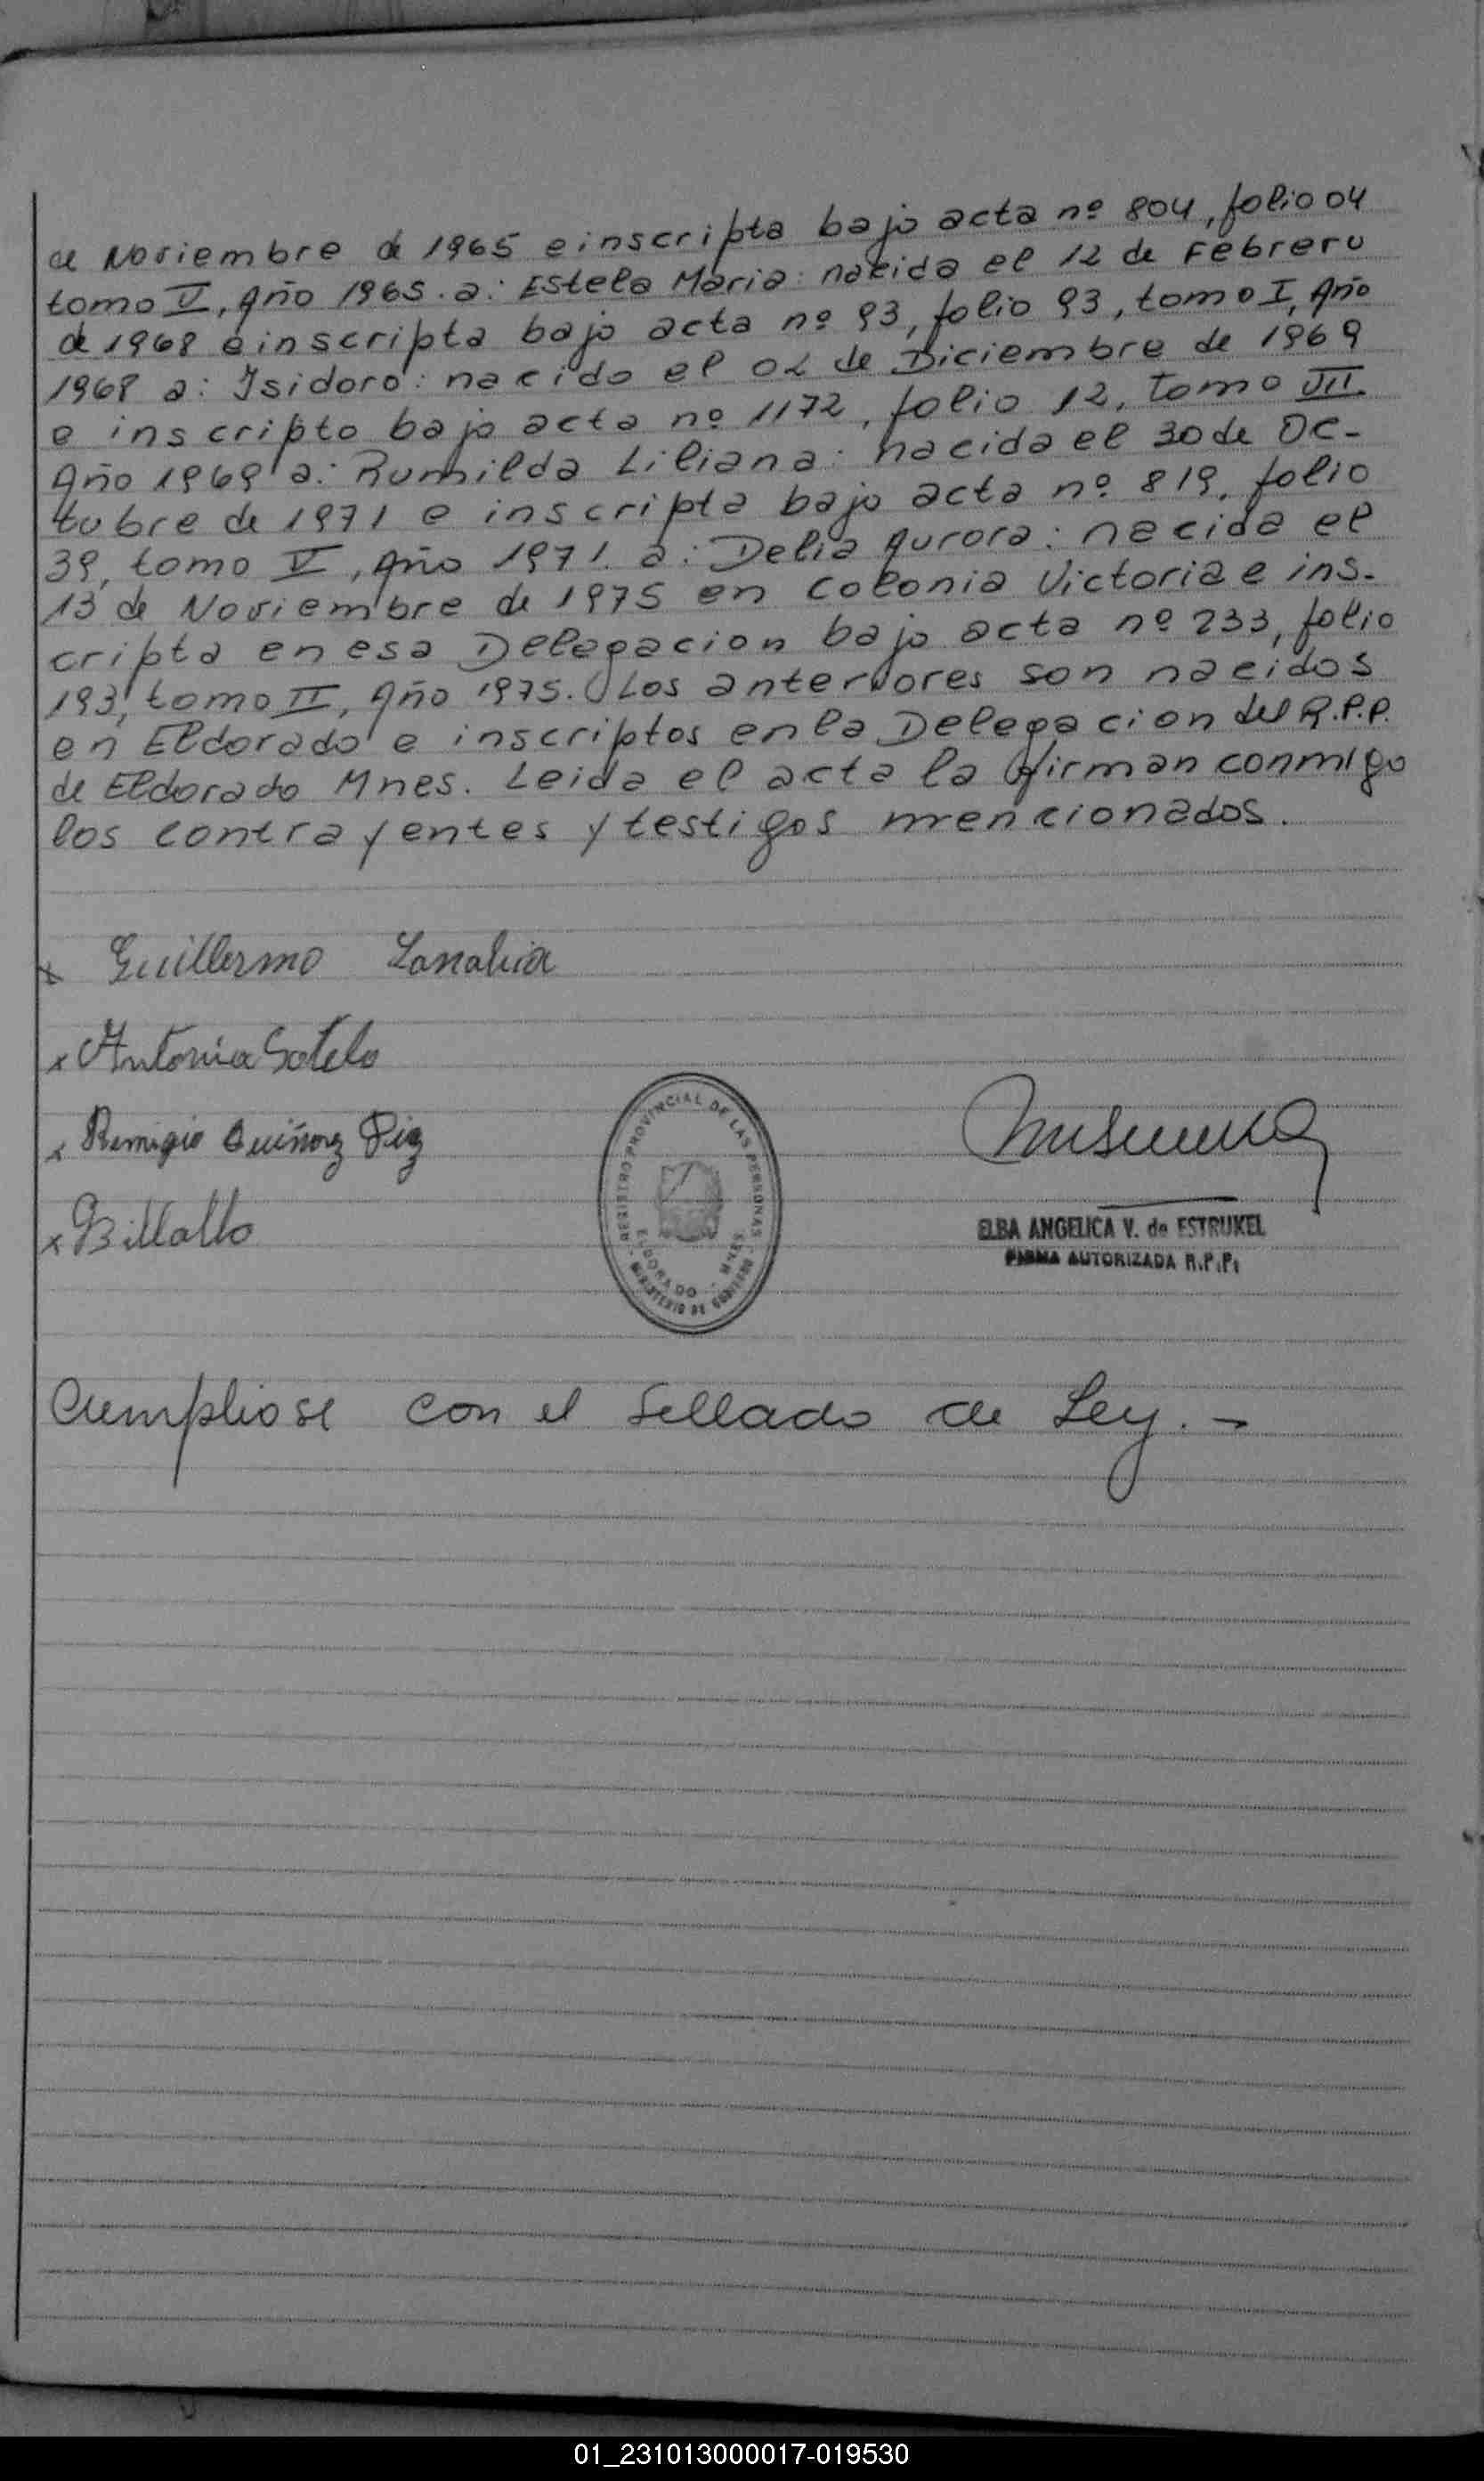 de Noviembre de 1965 e inscripta bajo acta nº 804, folio 04
tomo V, Año 1965. a: Estela Maria: nacida el 12 de Febrero
de 1968 e inscripta bajo acta nº 93, folio 93, tomo I, Año
1968 a: Isidoro: nacido el 02 de Diciembre de 1969
e inscripto bajo acta nº 1172, folio 12, tomo VII.
Año 1969 a: Rumilda Liliana: nacida el 30 de Oc-
tubre de 1971 e inscripta bajo acta nº 819, folio
39, tomo V, Año 1971. a: Delia Aurora: nacida el
13 de Noviembre de 1975 en Colonia Victoria e ins-
cripta en esa Delegacion bajo acta nº 233, folio
193, tomo II, Año 1975. Los anteriores son nacidos
en Eldorado e inscriptos en la Delegacion del R.P.P.
de Eldorado Mnes. Leida el acta la firman conmigo
los contrayentes y testigos mencionados.
x Guillermo
x Antonia Sotelo
x Remigio Quiñonez
x
REGISTRO PROVINCIAL DE LAS PERSONAS
ELDORADO - MNES.
MINISTERIO DE GOBIERNO
ELBA ANGELICA V. de ESTRUKEL
FIRMA AUTORIZADA R.P.P.
Cumpliose con el Sellado de Ley. -
01_231013000017-019530